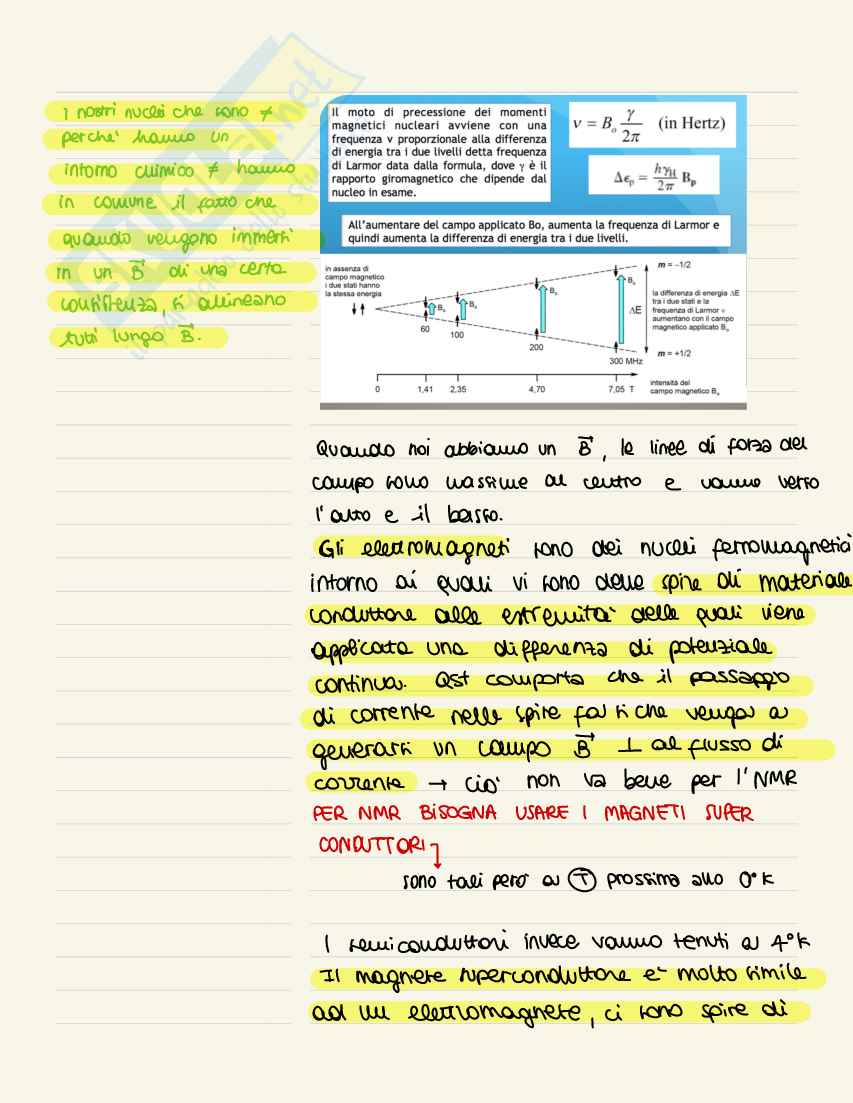 i nostri nuclei che sono ≠
perche' hanno un
intorno chimico ≠ hanno
in comune il fatto che
quando vengono immersi
in un B⃗ di una certa
consistenza, si allineano
tutti lungo B⃗.
Il moto di precessione dei momenti
magnetici nucleari avviene con una
frequenza ν proporzionale alla differenza
di energia tra i due livelli detta frequenza
di Larmor data dalla formula, dove γ è il
rapporto giromagnetico che dipende dal
nucleo in esame.
ν = Bo γ/2π (in Hertz)
Δεp = hγH/2π Bp
All'aumentare del campo applicato Bo, aumenta la frequenza di Larmor e
quindi aumenta la differenza di energia tra i due livelli.
in assenza di
campo magnetico
i due stati hanno
la stessa energia
Bo
60
Bo
100
Bo
200
Bo
ΔE
300 MHz
m = –1/2
la differenza di energia ΔE
tra i due stati e la
frequenza di Larmor ν
aumentano con il campo
magnetico applicato Bo
m = +1/2
0 1,41 2,35 4,70 7,05 T
intensità del
campo magnetico Bo
Quando noi abbiamo un B⃗, le linee di forza del
campo sono massime al centro e vanno verso
l'alto e il basso.
Gli elettromagneti sono dei nuclei ferromagnetici
intorno ai quali vi sono delle spire di materiale
conduttore alle estremita' delle quali viene
applicata una differenza di potenziale
continua. Qst comporta che il passaggio
di corrente nelle spire fa si che venga a
generarsi un campo B⃗ ⊥ al flusso di
corrente → cio' non va bene per l'NMR
PER NMR BISOGNA USARE I MAGNETI SUPER
CONDUTTORI
sono tali pero' a T prossima allo 0°K
I semiconduttori invece vanno tenuti a 4°K
Il magnete superconduttore e' molto simile
ad un elettromagnete, ci sono spire di